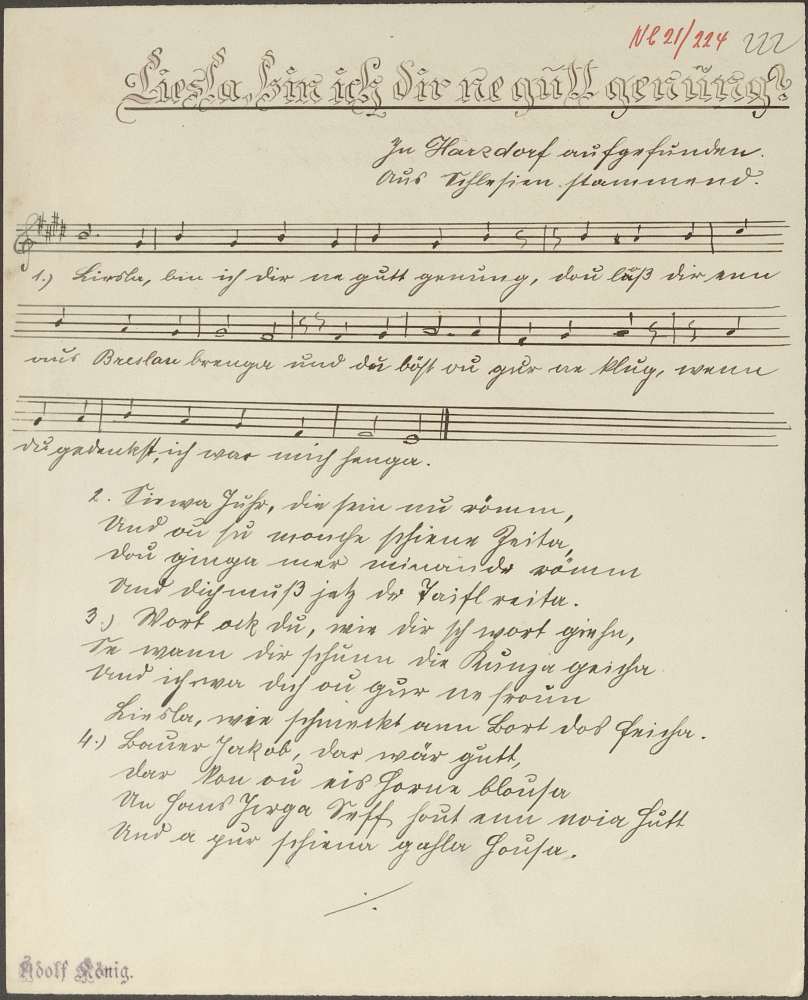 Nl 21/224 222
Liesla, bin ich dir ne gutt genung?
In Harzdorf aufgefunden.
Aus Schlesien stammend.
1.) Liesla, bin ich dir ne gutt genung, dou läß dir enn
aus Breslau brenga und du böst ou gur ne klug, wenn
du gedenkst, ich war mich henga.
2. Siewa Juhr, die sein nu römm,
Und ou su monche schiene Zeita,
Dou ginga mer minande römm
Und dich muß jetz dr Taifl reita.
3.) Wort ock du, wie dir sch wort giehn,
Se wann dir schunn die Kunza geicha
Und ich wa dich ou gur ne froun
Liesla, wie schmeckt ann Bort dos feicha.
4.) Bauer Jakob, dar wär gutt,
Dar kon ou eis Horne blousa
Un Hans Jirga Seff hout enn noia Hutt
Und a pur schiena gahla Housa.
./.
Adolf König.